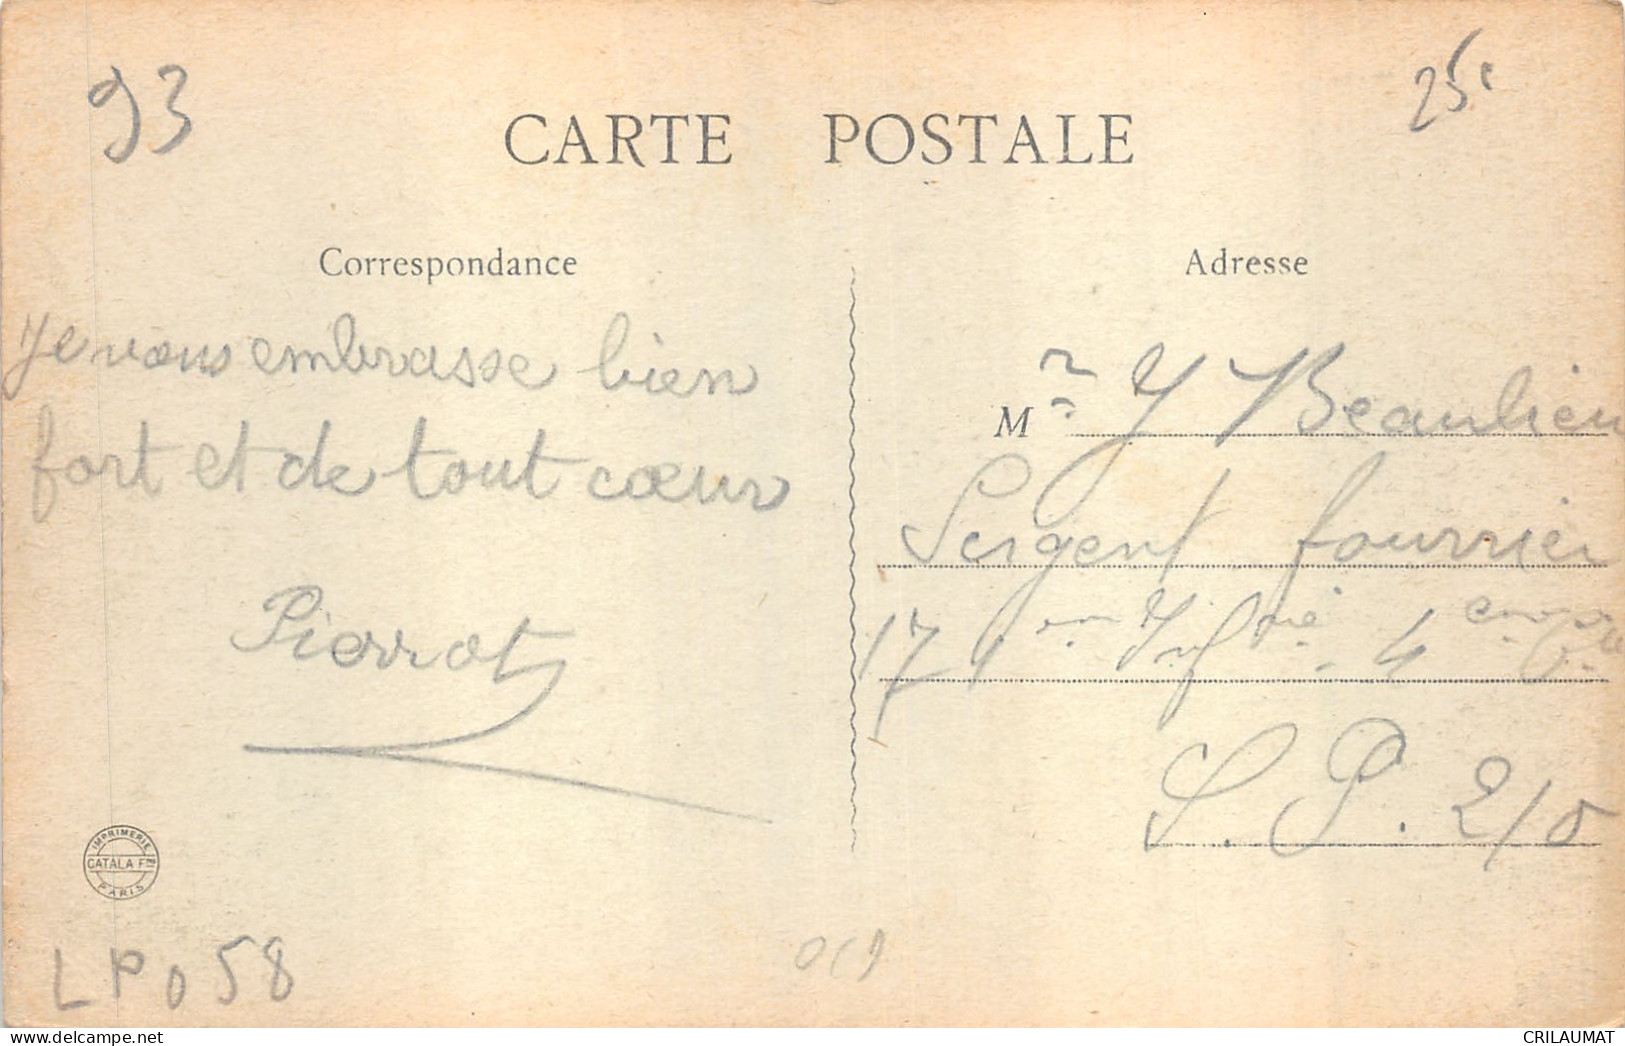 93
25c
CARTE POSTALE
Correspondance
Je vous embrasse bien
fort et de tout cœur
Pierrot
Adresse
Mr Y Beaulieu
Sergent fourrier
171 em Inf rie 4 em Cie
S. P. 210
IMPRIMERIE
CATALA Fres
PARIS
LP058
Delcampe.net
CRILAUMAT